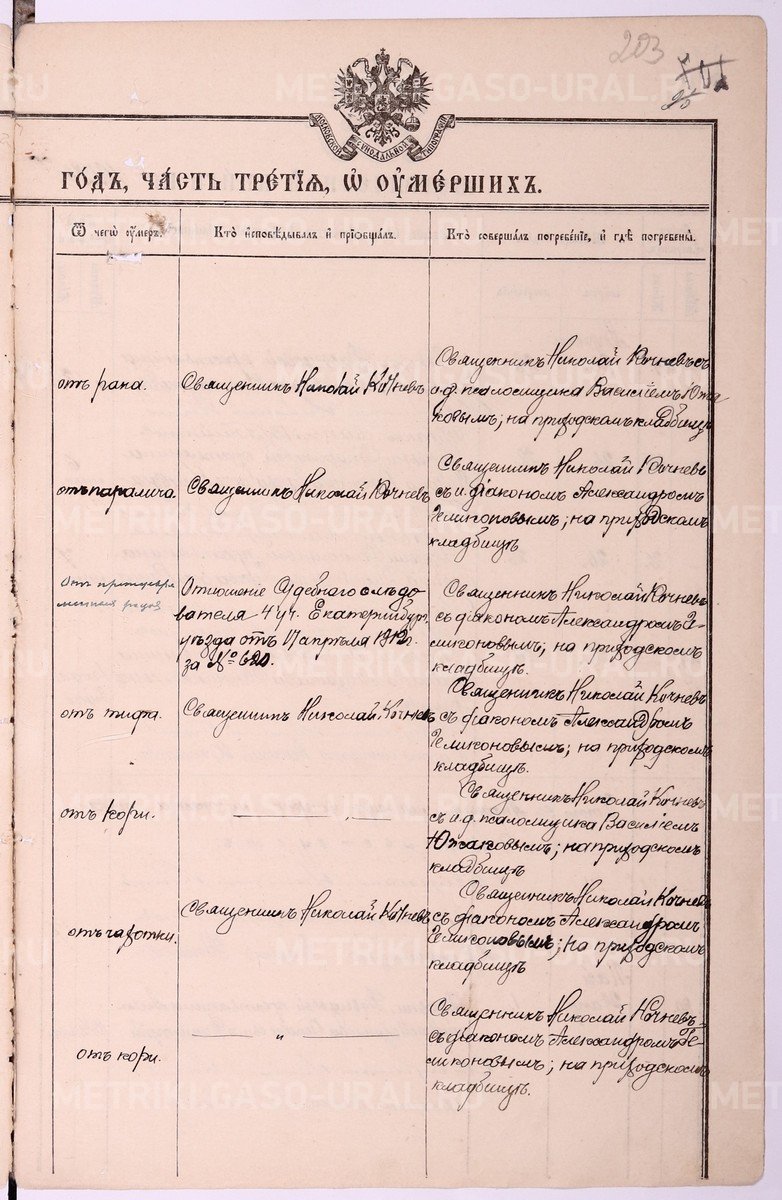 203
МОСКОВСКОЙ СѴНОДАЛЬНОЙ ТИПОГРАФІИ
ГОДЪ, ЧАСТЬ ТРЕТІЯ, Ѡ ОУМЕРШИХЪ.
Ѿ чегѡ оумеръ.
Кто исповѣдывалъ и пріобщалъ.
Кто совершалъ погребеніе, и гдѣ погребены.
отъ рака.
Священникъ Николай Кочневъ
Священникъ Николай Кочневъ съ
и.д. псаломщика Василіемъ Южа
ковымъ; на приходскомъ кладбищѣ
отъ паралича.
Священникъ Николай Кочневъ
Священникъ Николай Кочневъ
съ и. діакономъ Александромъ
Геликоновымъ; на приходскомъ
кладбищѣ
Отъ преждевре
менныхъ родовъ
Отношеніе Судебнаго слѣдо
вателя 4 уч. Екатеринбург.
уѣзда отъ 17 апрѣля 1912 г.
за № 620.
Священникъ Николай Кочневъ
съ діакономъ Александромъ Ге-
ликоновымъ; на приходскомъ
кладбищѣ.
отъ тифа.
Священникъ Николай Кочневъ
Священникъ Николай Кочневъ
съ діакономъ Александромъ
Геликоновымъ; на приходскомъ
кладбищѣ.
отъ кори.
— „ —
Священникъ Николай Кочневъ
съ и.д. псаломщика Василіемъ
Южаковымъ; на приходскомъ
кладбищѣ
отъ чахотки.
Священникъ Николай Кочневъ
Священникъ Николай Кочневъ
съ діакономъ Александромъ
Геликоновымъ; на приходскомъ
кладбищѣ
отъ кори.
— „ —
Священникъ Николай Кочневъ
съ діакономъ Александромъ Ге-
ликоновымъ; на приходскомъ
кладбищѣ.